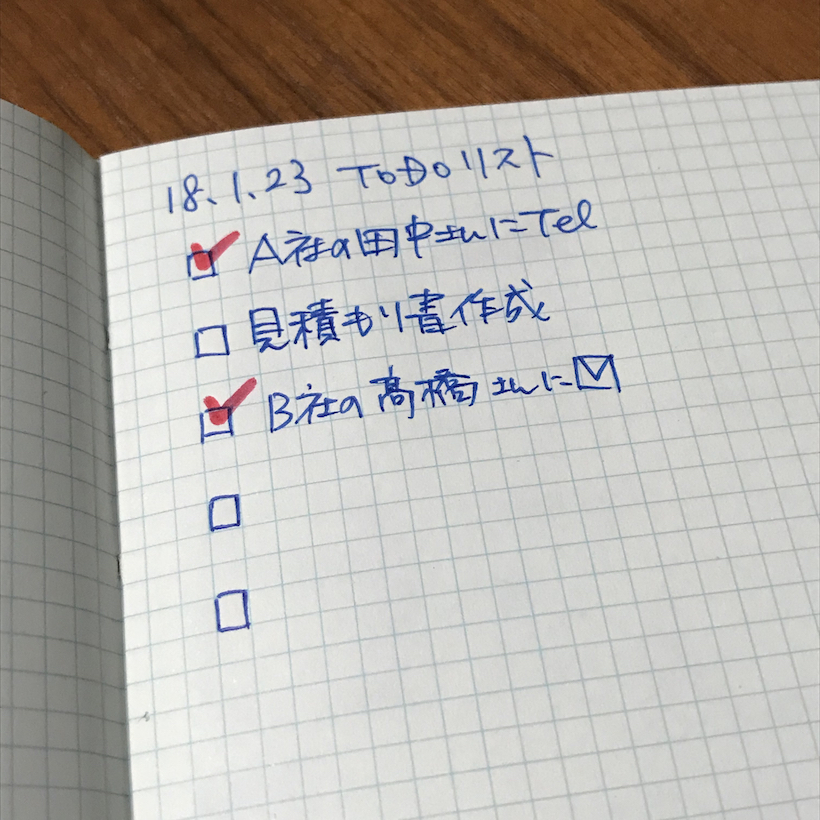 18.1.23 ToDoリスト
☑ A社の田中さんにTel
☐ 見積もり書作成
☑ B社の髙橋さんに✉
☐
☐